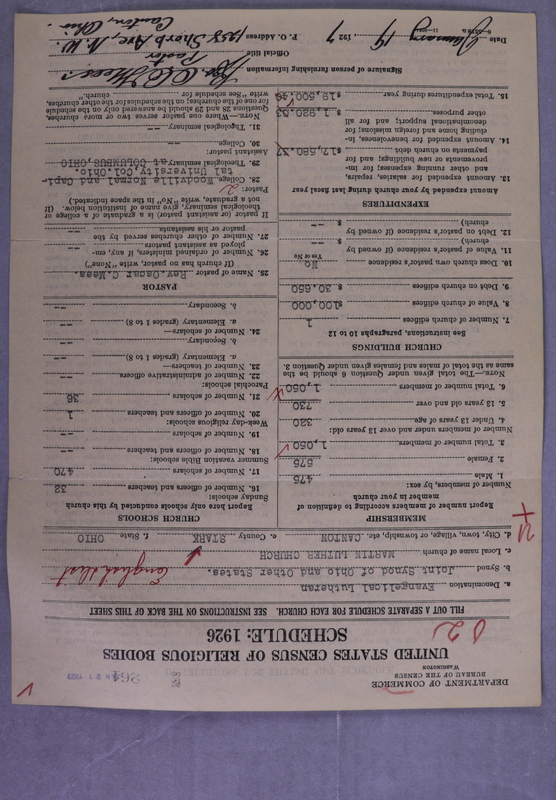 DEPARTMENT OF COMMERCE
BUREAU OF THE CENSUS
WASHINGTON
UNITED STATES CENSUS OF RELIGIOUS BODIES
SCHEDULE: 1926
FILL OUT A SEPARATE SCHEDULE FOR EACH CHURCH. SEE INSTRUCTIONS ON THE BACK OF THIS SHEET
a. Denomination Evangelical Lutheran
b. Synod Joint Synod of Ohio and Other States.
English dist
c. Local name of church MARTIN LUTHER CHURCH
d. City, town, village, or township, etc. CANTON e. County STARK f. State OHIO
MEMBERSHIP
Report number of members according to definition of
member in your church
Number of members, by sex:
1. Male 475
2. Female 575
3. Total number of members 1,050
Number of members under and over 13 years old:
4. Under 13 years of age 320
5. 13 years old and over 730
6. Total number of members 1,050
NOTE.—The total given under Question 6 should be the
same as the total of males and females given under Question 3.
CHURCH BUILDINGS
See instructions, paragraphs 10 to 12
7. Number of church edifices 1
8. Value of church edifices $100,000
9. Debt on church edifices $30,650
10. Does church own pastor's residence No
Yes or No
11. Value of pastor's residence (if owned by
church) $ --
12. Debt on pastor's residence (if owned by
church) $ --
EXPENDITURES
Amount expended by your church during last fiscal year
13. Amount expended for salaries, repairs,
and other running expenses; for im-
provements or new buildings; and for
payments on church debt $17,580.37
14. Amounts expended for benevolences, in-
cluding home and foreign missions; for
denominational support; and for all
other purposes $1,920.03
15. Total expenditures during year $19,500.40
CHURCH SCHOOLS
Report here only schools conducted by this church
Sunday schools:
16. Number of officers and teachers 32
17. Number of scholars 470
Summer vacation Bible schools:
18. Number of officers and teachers --
19. Number of scholars --
Week-day religious schools:
20. Number of officers and teachers 1
21. Number of scholars 36
Parochial schools:
22. Number of administrative officers --
23. Number of teachers—
a. Elementary (grades 1 to 8) --
b. Secondary --
24. Number of scholars—
a. Elementary (grades 1 to 8) --
b. Secondary --
PASTOR
25. Name of pastor Rev. Oscar C. Mees
(If church has no pastor, write "None")
26. Number of ordained ministers, if any, em-
ployed as assistant pastors --
27. Number of other churches served by the
pastor or his assistants --
If pastor (or assistant pastor) is a graduate of a college or
theological seminary, give name of institution below. (If
not a graduate, write "NO" in the space indicated.)
Pastor:
28. College Woodville Normal and Capi-
tal University, Col. Ohio.
29. Theological seminary at COLUMBUS, OHIO
Assistant pastor:
30. College --
31. Theological seminary --
NOTE.—Where one pastor serves two or more churches,
Questions 28 and 29 should be answered only on the schedule
for one of the churches; on the schedules for the other churches,
write "See schedule for church."
Signature of person furnishing information
Official title Pastor
P. O. Address 1258 Sherb Ave, N. W.
Canton, Ohio.
Date January 19 1927